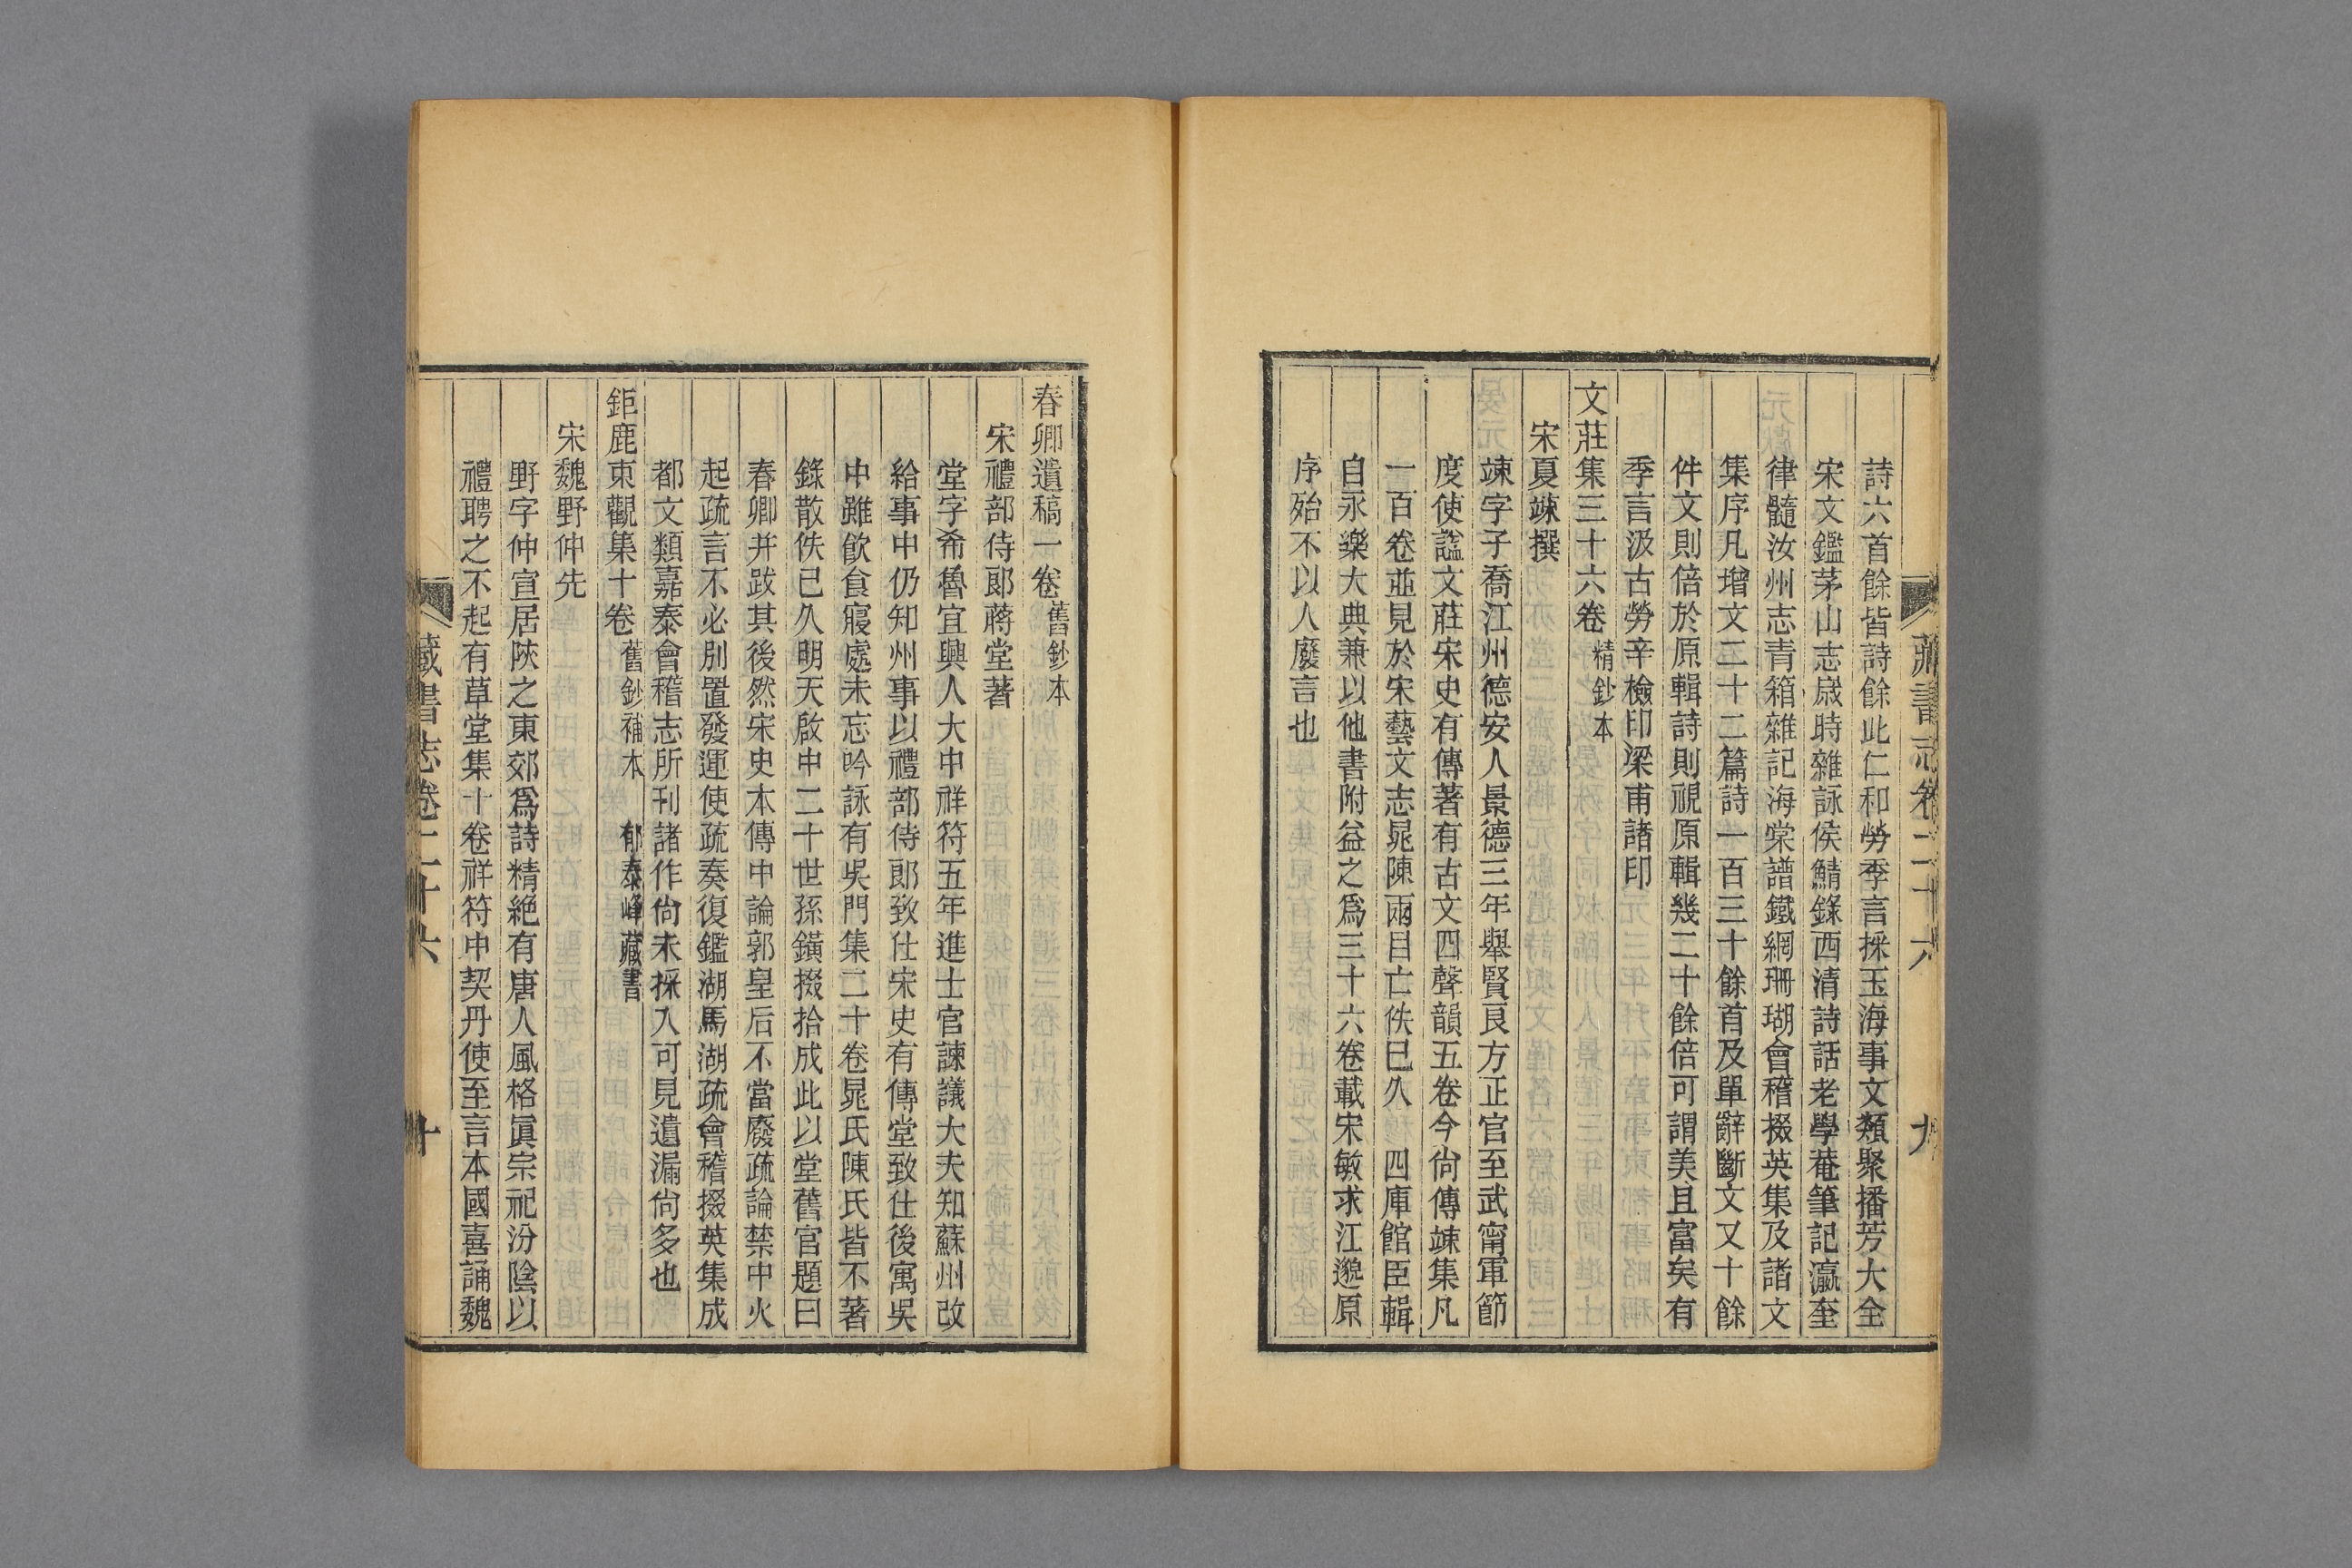 詩六首餘皆詩餘此仁和勞季言採玉海事文類聚播芳大全
宋文鑑茅山志歲時雜詠侯鯖錄西清詩話老學菴筆記瀛奎
律髓汝州志青箱雜記海棠譜鐵網珊瑚會稽掇英集及諸文
集序凡增文二十二篇詩一百三十餘首及單辭斷文又十餘
件文則倍於原輯詩則視原輯幾二十餘倍可謂美且富矣有
季言汲古勞辛檢印梁甫諸印
文莊集三十六卷 精鈔本
宋夏竦撰
竦字子喬江州德安人景德三年舉賢良方正官至武甯軍節
度使諡文莊宋史有傳著有古文四聲韻五卷今尙傳竦集凡
一百卷並見於宋藝文志晁陳兩目亡佚已久 四庫館臣輯
自永樂大典兼以他書附益之爲三十六卷載宋敏求江邈原
序殆不以人廢言也
藏書志卷二十六 九
春卿遺稿一卷 舊鈔本
宋禮部侍郞蔣堂著
堂字希魯宜興人大中祥符五年進士官諫議大夫知蘇州改
給事中仍知州事以禮部侍郞致仕宋史有傳堂致仕後寓吳
中雖飮食寢處未忘吟詠有吳門集二十卷晁氏陳氏皆不著
錄散佚已久明天啟中二十世孫鐄掇拾成此以堂舊官題曰
春卿并跋其後然宋史本傳中論郭皇后不當廢疏論禁中火
起疏言不必別置發運使疏奏復鑑湖馬湖疏會稽掇英集成
都文類嘉泰會稽志所刊諸作尙未採入可見遺漏尙多也
鉅鹿東觀集十卷 舊鈔補本 郁泰峰藏書
宋魏野仲先
野字仲宣居陝之東郊爲詩精絶有唐人風格眞宗祀汾陰以
禮聘之不起有草堂集十卷祥符中契丹使至言本國喜誦魏
藏書志卷二十六 十